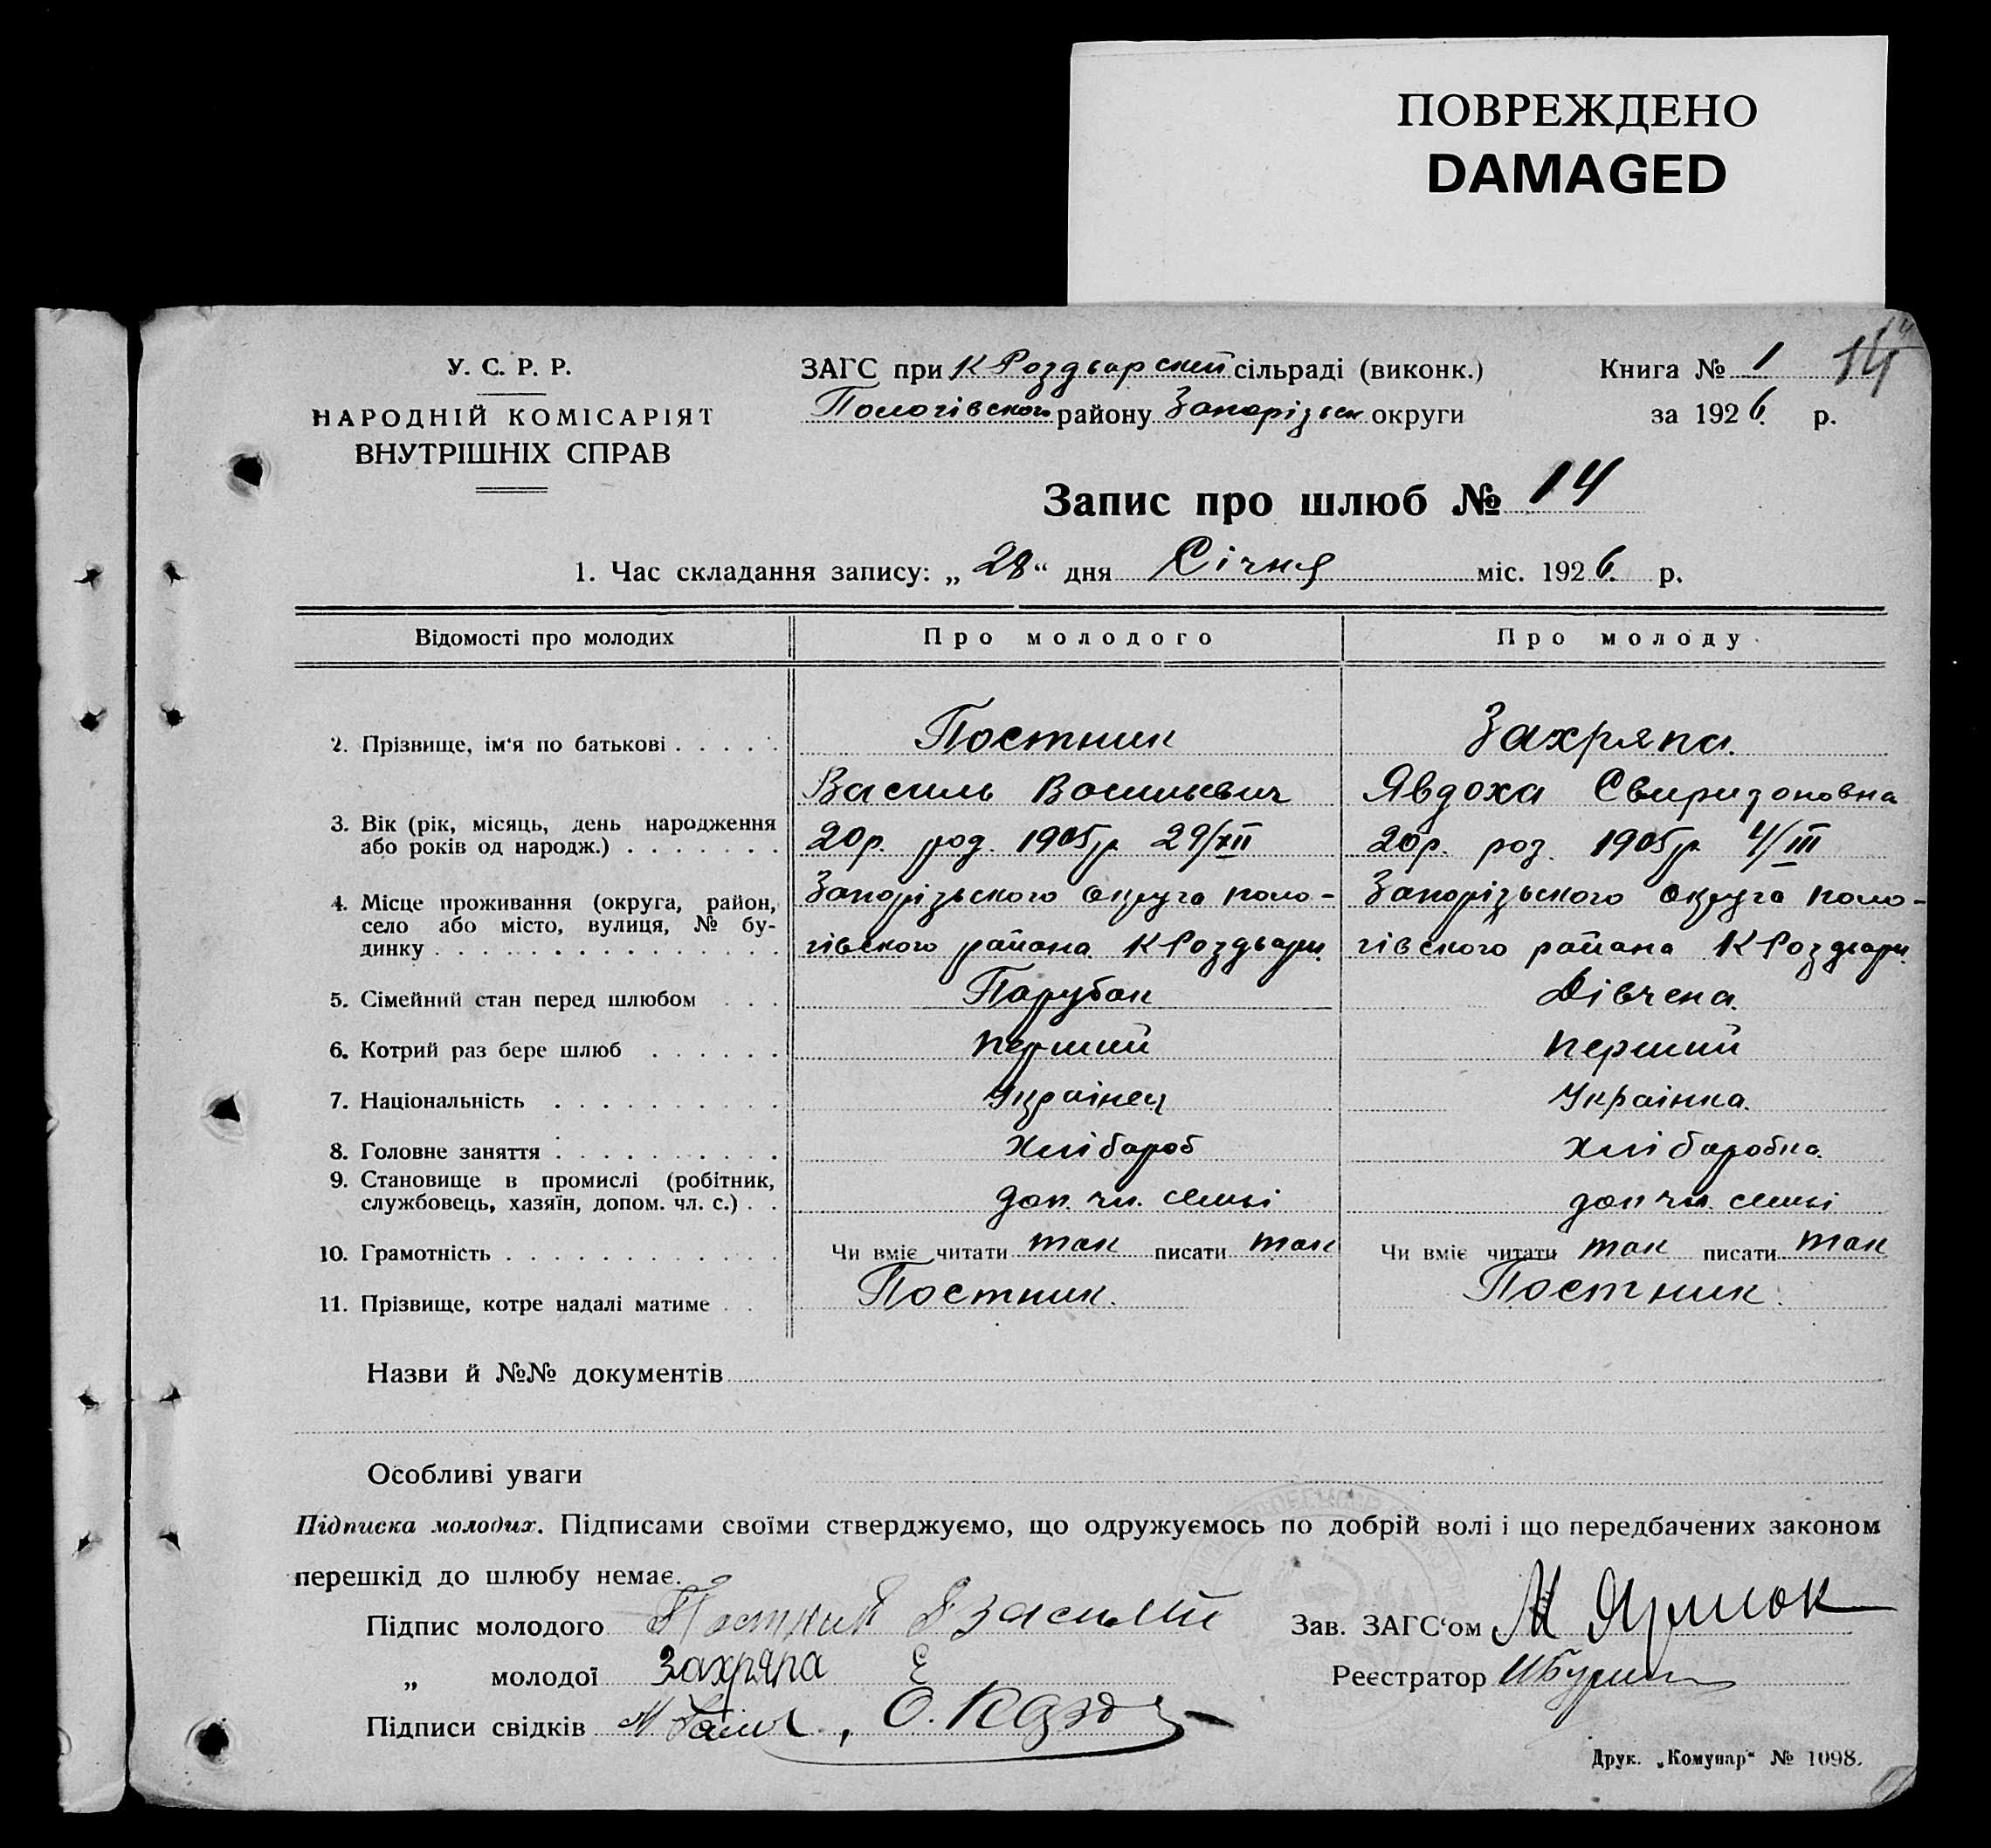 ПОВРЕЖДЕНО
DAMAGED
У. С. Р. Р.
НАРОДНІЙ КОМІСАРІЯТ
ВНУТРІШНІХ СПРАВ
ЗАГС при К Роздорский сільраді (виконк.)
Пологівского району Запорізьк округи
Книга № 1
14
за 1926 р.
Запис про шлюб № 14
1. Час складання запису: „28“ дня Січня міс. 1926. р.
Відомості про молодих Про молодого Про молоду
2. Прізвище, ім‘я по батькові . . . . . Постник Захряпа.
Василь Васильевич Явдоха Свиридоновна
3. Вік (рік, місяць, день народження
або років од народж.) . . . . . . . 20р. род. 1905р 29/XII 20р. роз. 1905р 4/III
4. Місце проживання (округа, район,
село або місто, вулиця, № бу-
динку . . . . . . . . . . . . . . .
Запорізьского округа поло- Запорізьского округа поло-
гівского района К Роздари. гівского района К Роздари.
5. Сімейний стан перед шлюбом . . . Парубак Дівчена.
6. Котрий раз бере шлюб . . . . . . перший перший
7. Національність . . . . . . . . . . Украінец Украінка.
8. Головне заняття . . . . . . . . . . Хлібароб Хлібаробка
9. Становище в промислі (робітник,
службовець, хазяїн, допом. чл. с.) . . доп. чл. семьі доп чл. семьі
10. Грамотність . . . . . . . . . . . . Чи вміє читати так писати так Чи вміє читати так писати так
11. Прізвище, котре надалі матиме . . Постник. Постник.
Назви й №№ документів
Особливі уваги
Підписка молодих. Підписами своїми стверджуємо, що одружуємось по добрій волі і що передбачених законом
перешкід до шлюбу немає.
Підпис молодого Постник Василий Зав. ЗАГС‘ом М Ярмок
„ молодої Захряпа Е Реєстратор
Підписи свідків
Друк. „Комунар“ № 1098.